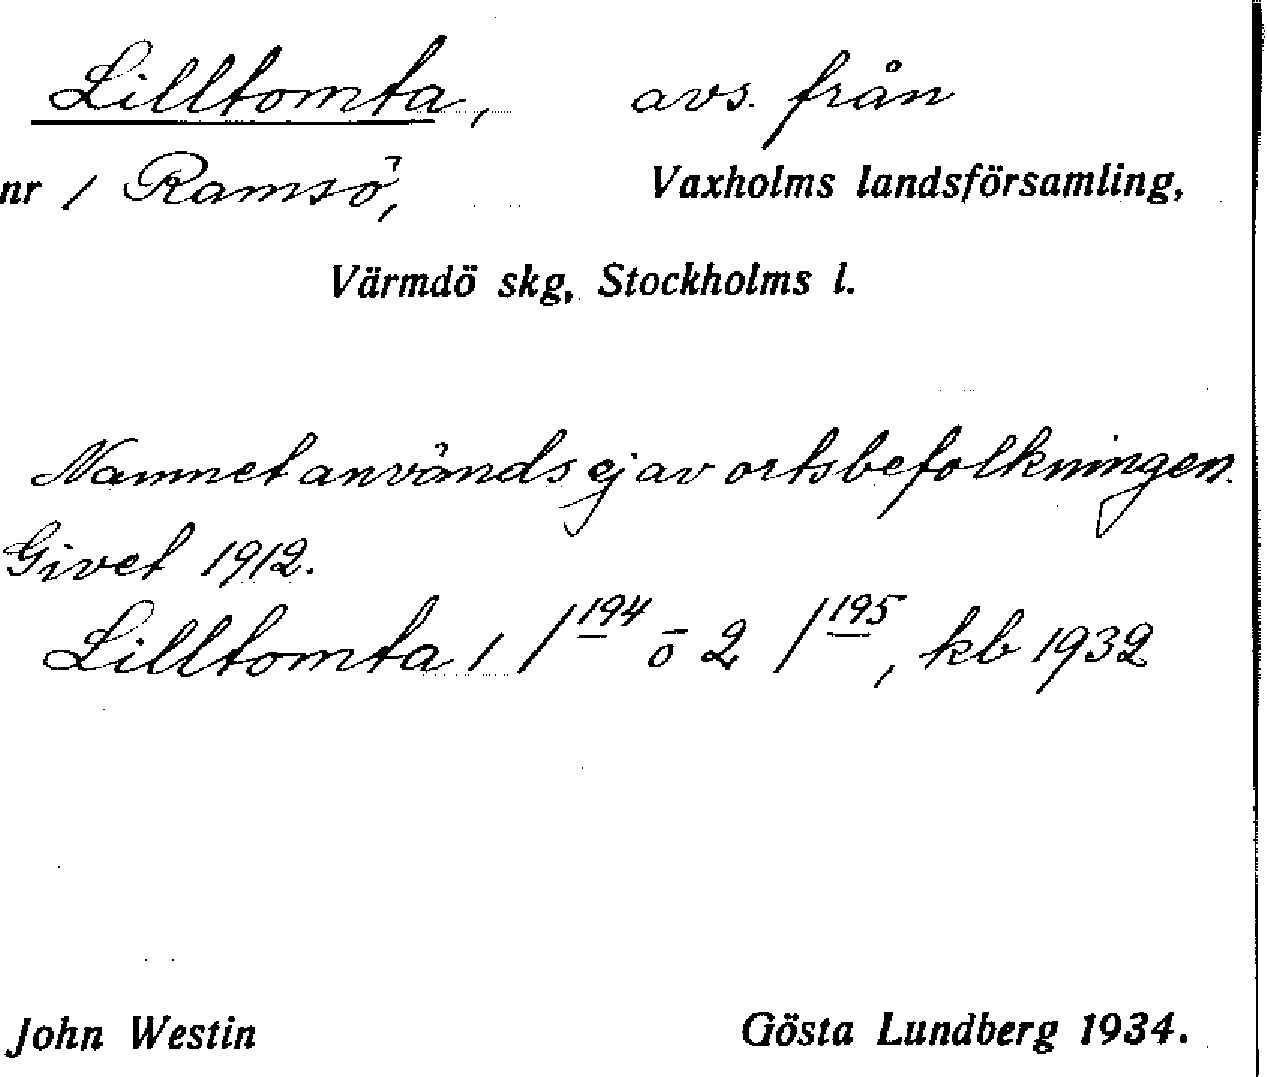 Lilltomta, avs. från
nr 1 Ramsö, Vaxholms landsförsamling,
Värmdö skg, Stockholms l.
Namnet används ej av ortsbefolkningen.
Givet 1912.
Lilltomta 1 /194 o 2 /195, kb 1932
John Westin Gösta Lundberg 1934.